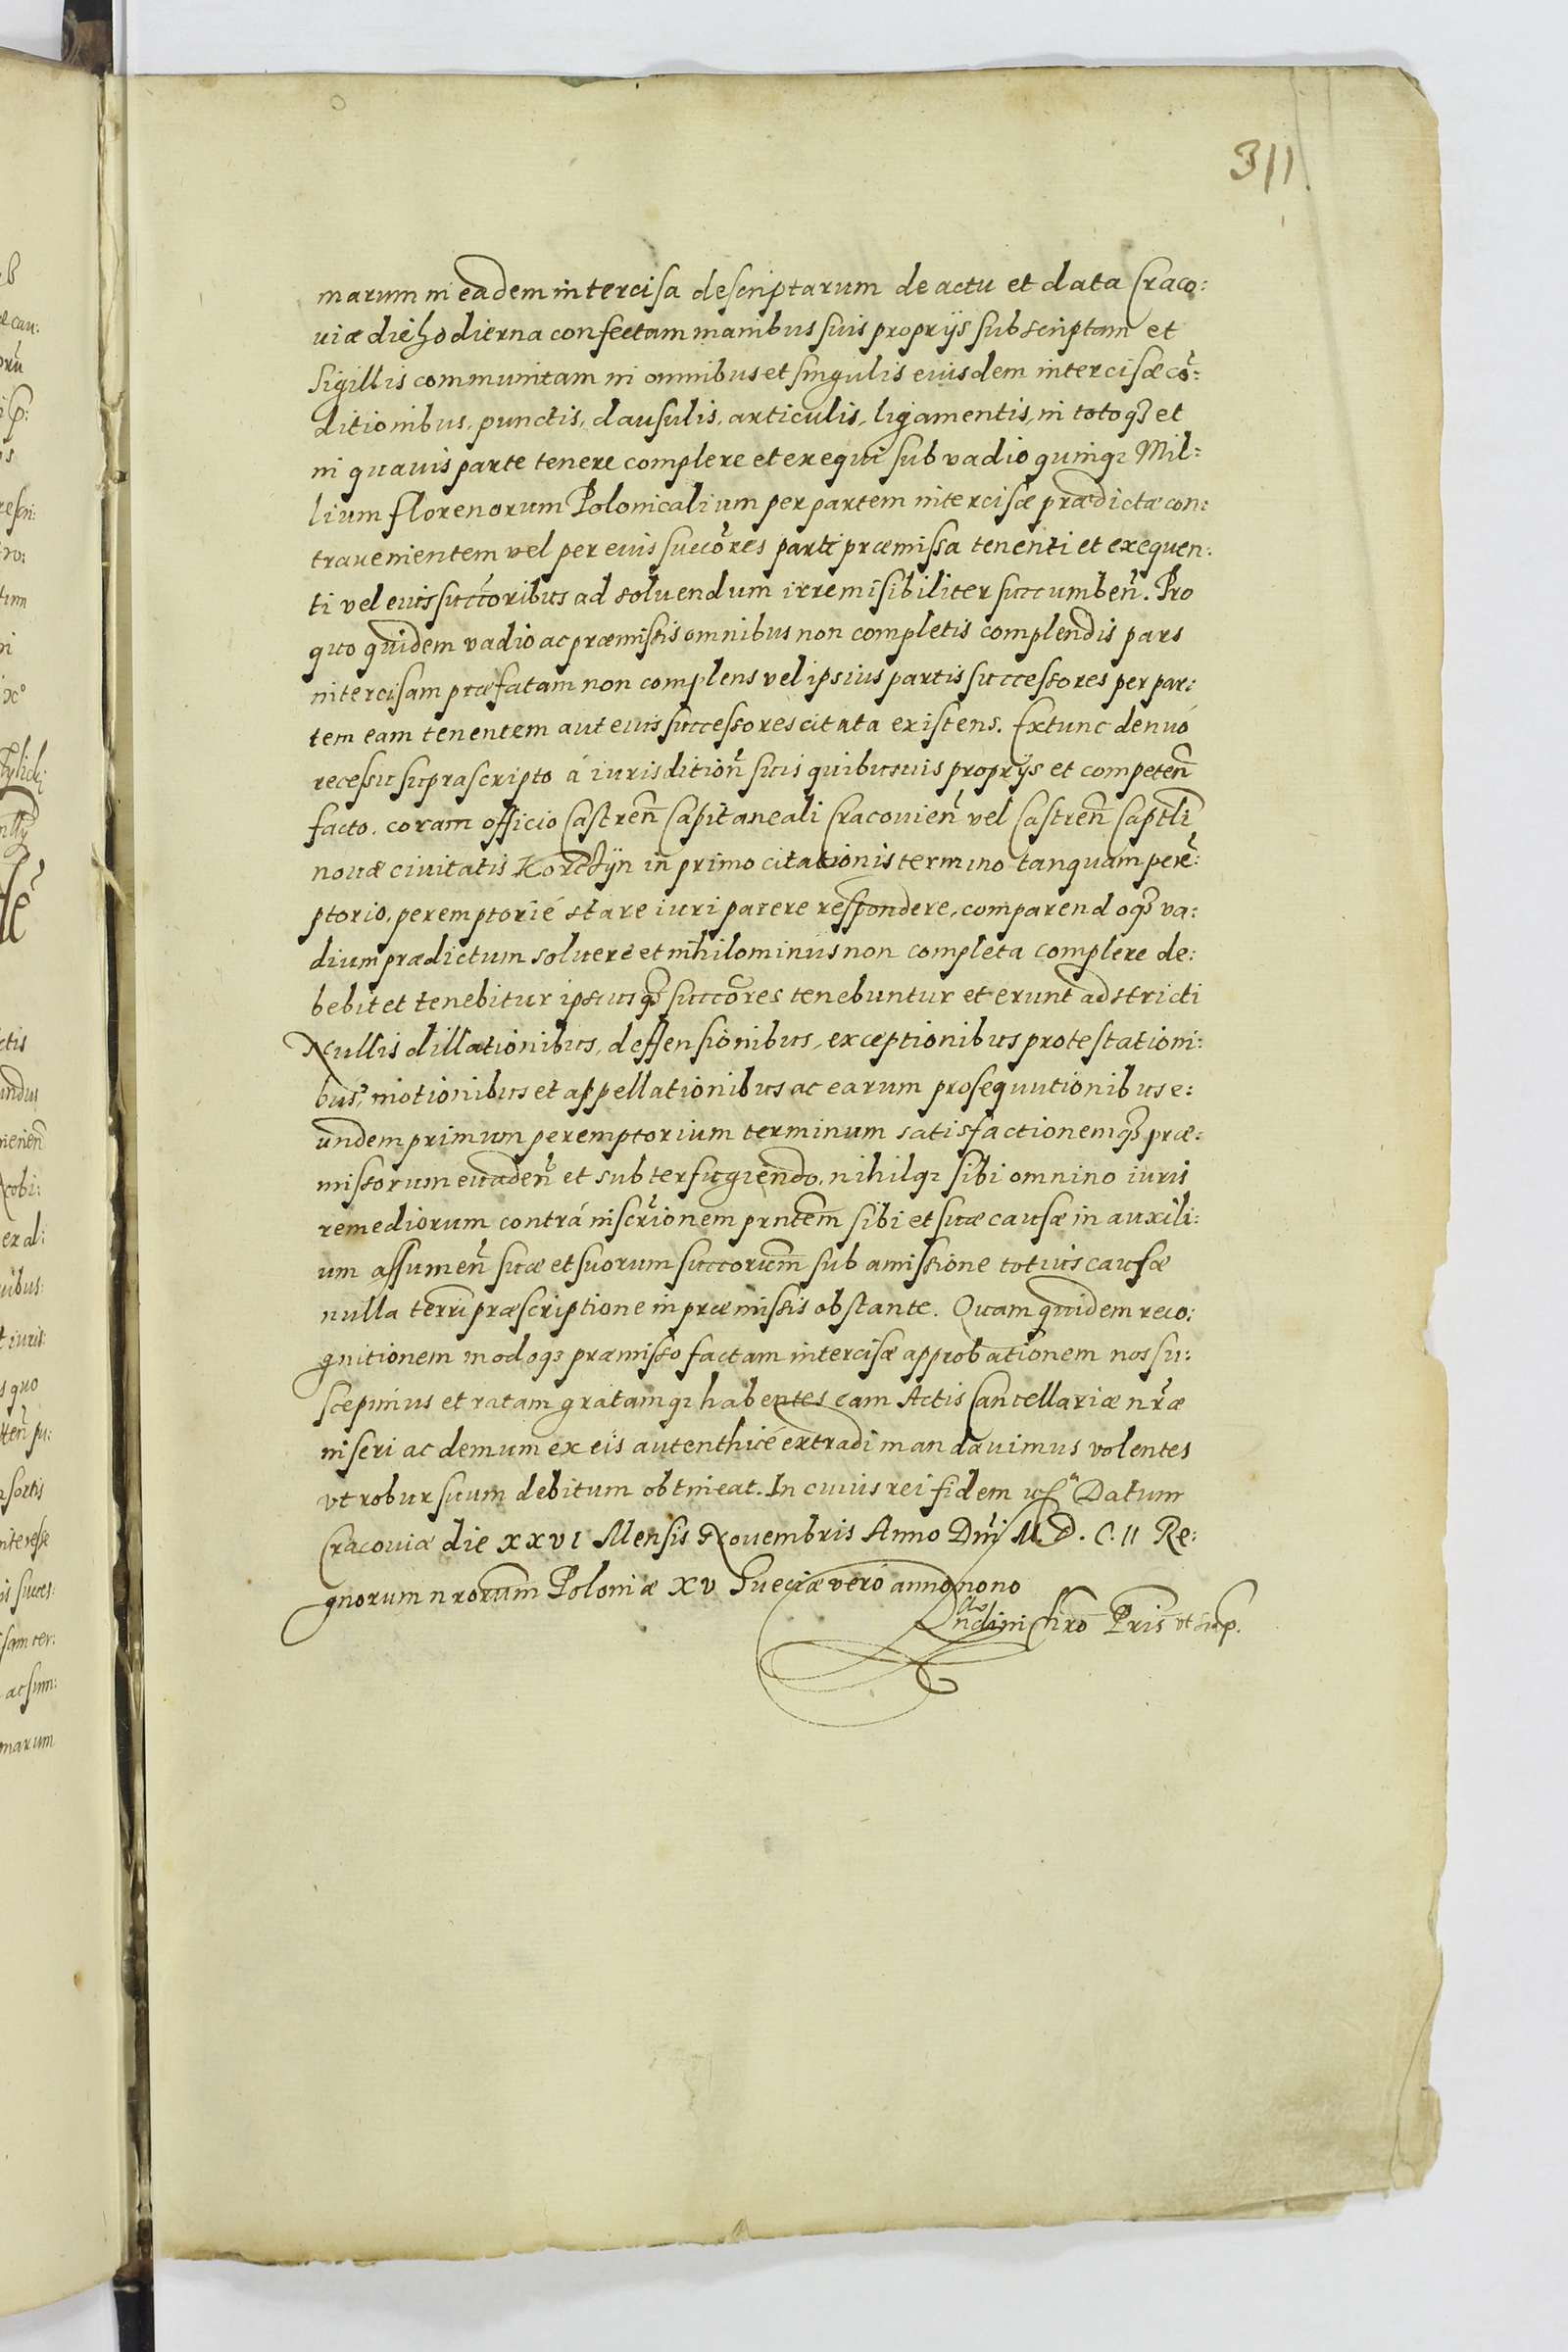 311.
marum in eadem intercisa descriptarum de actu et data Craco:
uiæ die hodierna confectam manibus suis proprijs subscriptam et
Sigillis communitam in omnibus et singulis eiusdem intercisæ cõ:
ditionibus, punctis, clausulis, articulis, ligamentis, in totoq3 et
in quauis parte tenere complere et exequi sub vadio quinq3 Mil:
lium florenorum Polonicalium per partem intercisæ prædictæ con:
trauenientem vel per eius succõres parti præmissa tenenti et exequen:
ti vel eius succõribus ad soluendum irremisibiliter succumbeñ. Pro
quo quidem vadio ac præmissis omnibus non completis complendis pars
intercisam præfatam non complens vel ipsius partis successores per par:
tem eam tenentem aut eius successores citata existens. Extunc denuó
recessu suprascripto á iurisditioñ suis quibusuis proprijs et competeñ
facto. coram officio Castreñ Capitaneali Cracouieñ vel Castreñ Captli
nouæ ciuitatis Korczÿn in primo citationis termino tanquam perẽ:
ptorio, peremptorié stare iuri parere respondere, comparendoq3 va:
dium prædictum soluere et nihilominus non completa complere de:
bebit et tenebitur ipsiusq3 succõres tenebuntur et erunt adstricti
Nullis dillationibus, deffensionibus, exceptionibus protestationi:
bus, motionibus et appellationibus ac earum prosequutionibus e:
undem primum peremptorium terminum satisfactionemq3 præ:
missorum euadeñ et subterfugiendo, nihilq3 sibi omnino iuris
remediorum contrá inscr̃ionem prntem sibi et suæ causæ in auxili:
um assumeñ suæ et suorum succorum sub amissione totius causæ
nulla terri præscriptione in præmissis obstante. Quam quidem reco:
gnitionem modoq3 præmisso factam intercisæ approbationem nos su:
scepimus et ratam gratamq3 habentes eam Actis Cancellariæ nr̃æ
inseri ac demum ex eis autenthicé extradi mandauimus volentes
vt robur suum debitum obtineat. In cuius rei fidem Datum
Cracouiæ die XXVI Mensis Nouembris Anno Dñi M.D.C.II Re:
gnorum nrorum Poloniæ XV Sueciæ veró anno nono
Pris vt sup.